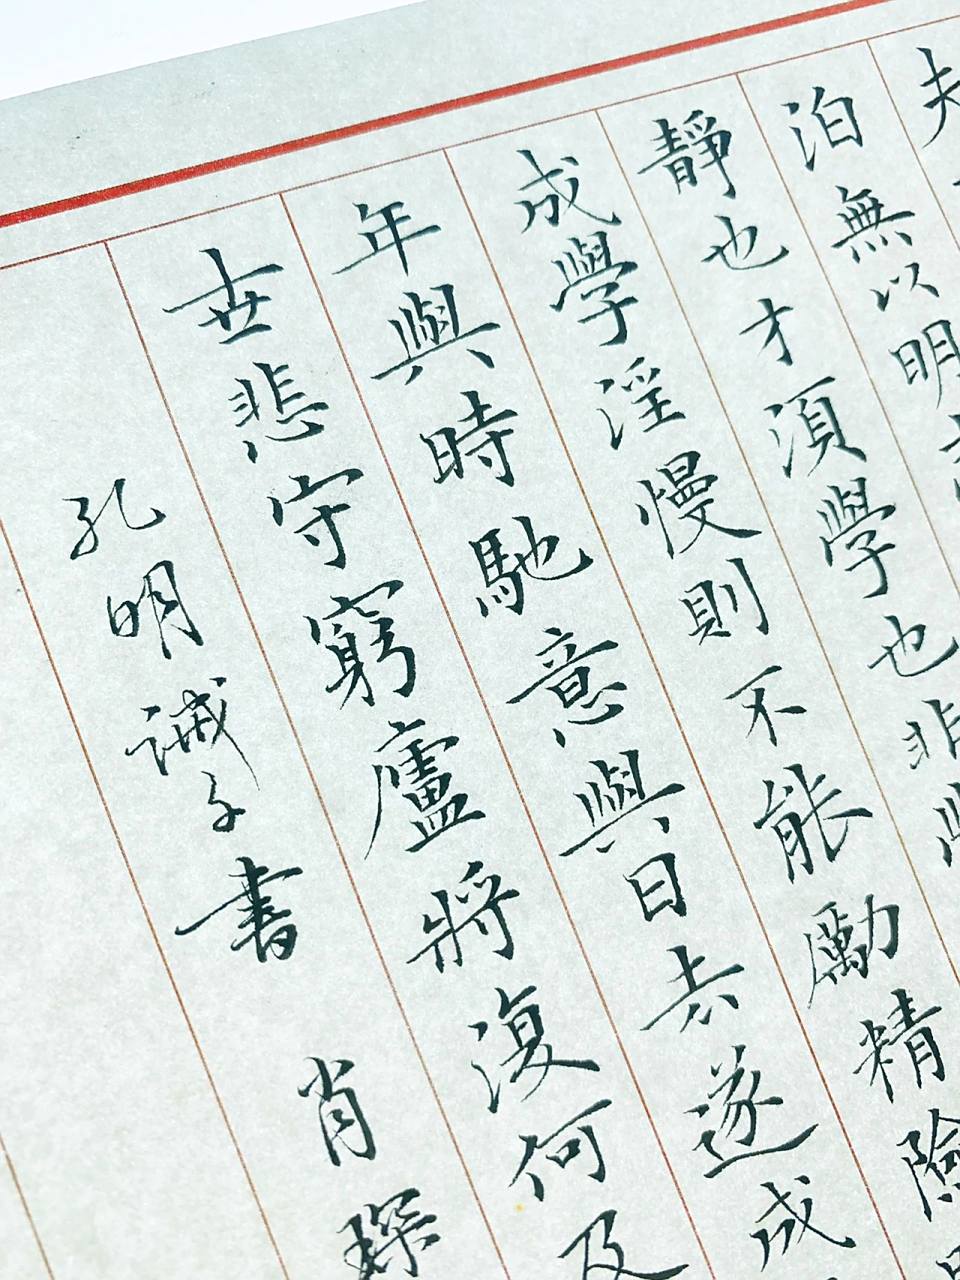 夫
泊無以明
靜也才須學也非
成學淫慢則不能勵精險
年與時馳意與日去遂成
世悲守窮廬將復何及
孔明誡子書 肖琛